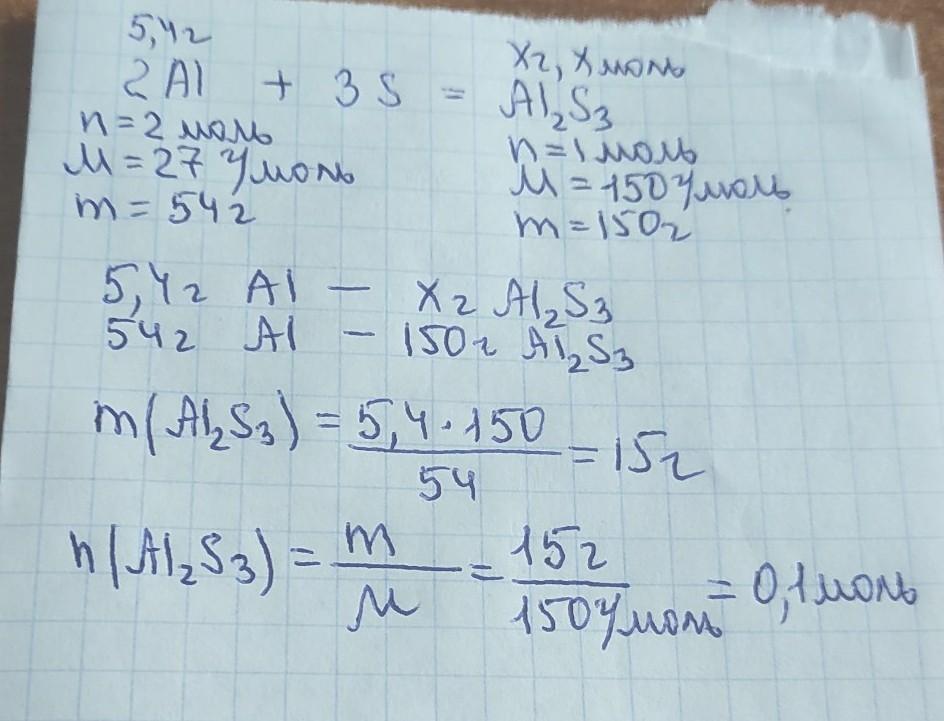 5,4г
xг, x моль
2Al + 3S = Al₂S₃
n = 2 моль
n = 1 моль
M = 27 г/моль
M = 150 г/моль
m = 54 г
m = 150 г
5,4г Al — xг Al₂S₃
54г Al — 150г Al₂S₃
m(Al₂S₃) = 5,4 · 150 / 54 = 15г
n(Al₂S₃) = m / M = 15г / 150 г/моль = 0,1 моль